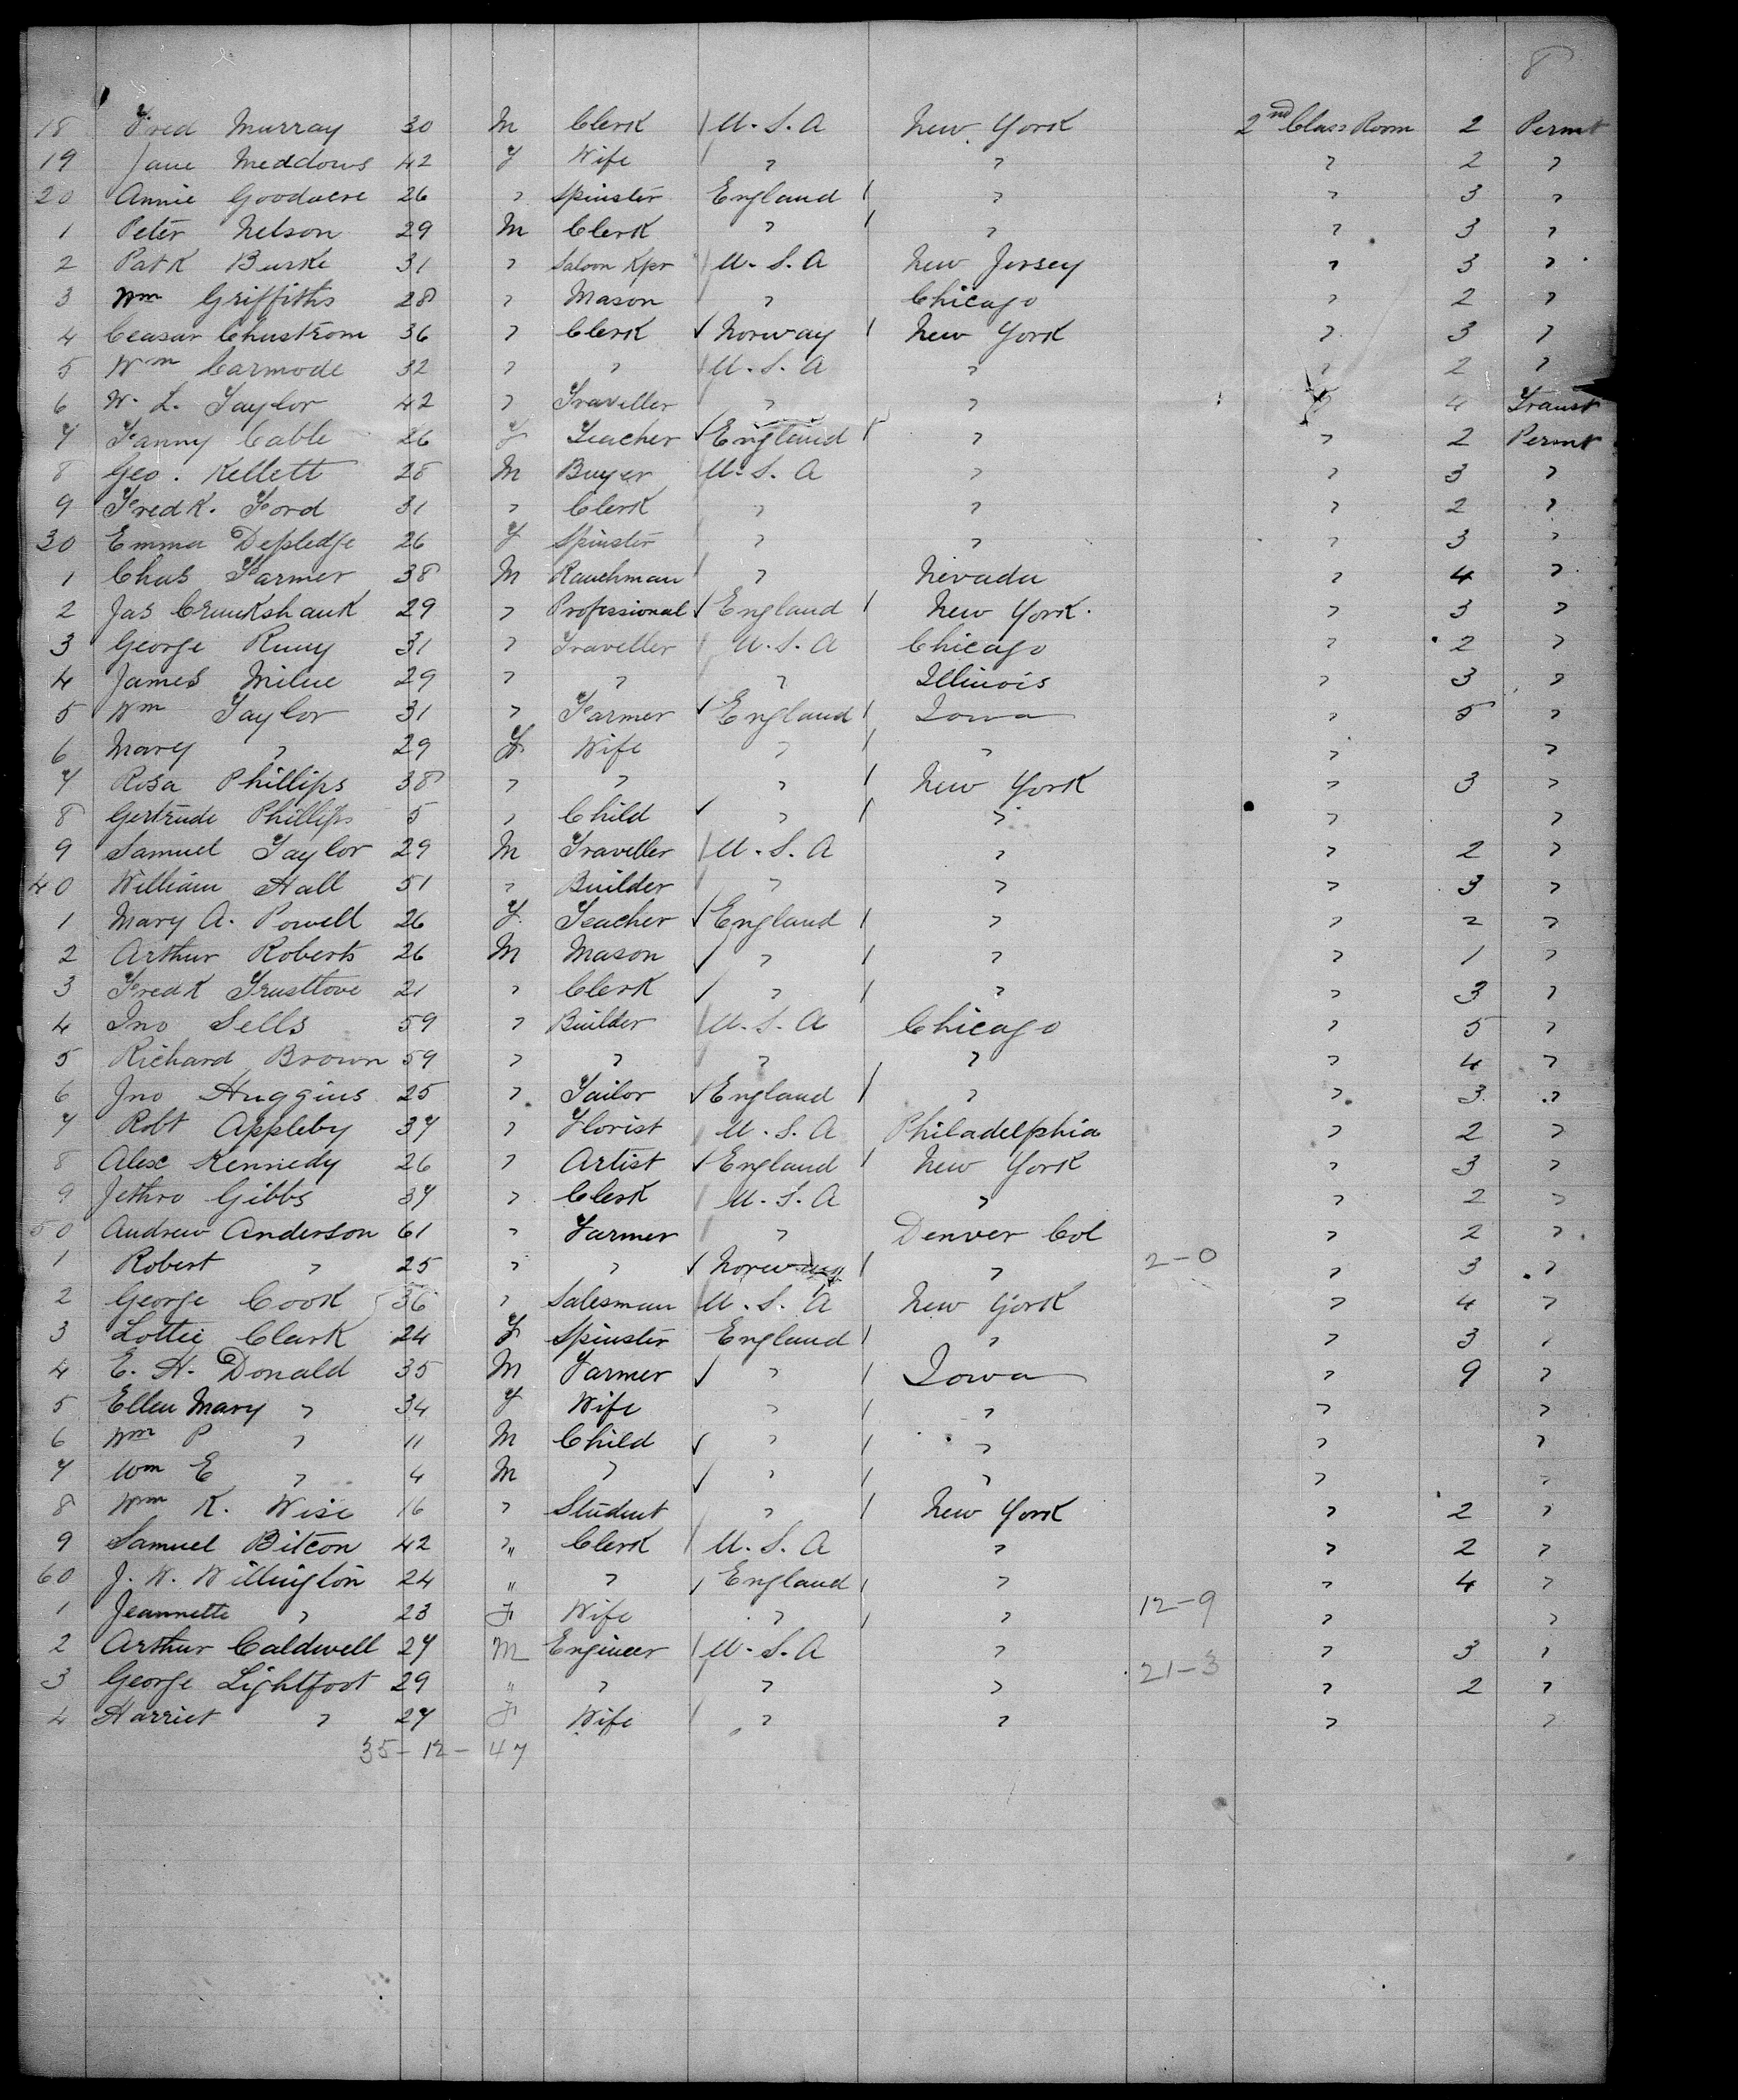 8
18 Fred Murray 30 M Clerk U.S.A New York 2nd Class Room 2 Permt
19 Jane Meddows 42 F Wife " " " 2 "
20 Annie Goodacre 26 " Spinster England " " 3 "
1 Peter Nelson 29 M Clerk " " " 3 "
2 Patk Burke 31 " Saloon Kpr U.S.A New Jersey " 3 "
3 Wm Griffiths 28 " Mason " Chicago " 2 "
4 Ceasar Chustrom 36 " Clerk Norway New York " 3 "
5 Wm Carmode 32 " " U.S.A " " 2 "
6 W. L. Taylor 42 " Traveller " " " 4 Transt
7 Fanny Cable 26 F Teacher England " " 2 Permt
8 Geo. Kellett 28 M Buyer U.S.A " " 3 "
9 Fredk. Ford 31 " Clerk " " " 2 "
30 Emma Depledge 26 F Spinster " " " 3 "
1 Chas Farmer 38 M Ranchman " Nevada " 4 "
2 Jas Cruukshank 29 " Professional England New York. " 3 "
3 George 31 " Traveller U.S.A Chicago " 2 "
4 James Milne 29 " " " Illinois " 3 "
5 Wm Taylor 31 " Farmer England Iowa " 5 "
6 Mary " 29 F Wife " " " "
7 Rosa Phillips 38 " " " New York " 3 "
8 Gertrude Phillips 5 " Child " " " "
9 Samuel Taylor 29 M Traveller U.S.A " " 2 "
40 William Hall 51 " Builder " " " 3 "
1 Mary A. Powell 26 F Teacher England " " 2 "
2 Arthur Roberts 26 M Mason " " " 1 "
3 Fredk Trustlove 21 " Clerk " " " 3 "
4 Jno Sells 59 " Builder U.S.A Chicago " 5 "
5 Richard Brown 59 " " " " " 4 "
6 Jno Huggins 25 " Tailor England " " 3 "
7 Robt Appleby 37 " Florist U.S.A Philadelphia " 2 "
8 Alex Kennedy 26 " Artist England New York " 3 "
9 Jethro Gibbs 37 " Clerk U.S.A " " 2 "
50 Andrew Anderson 61 " Farmer " Denver Col " 2 "
1 Robert " 25 " " Norway " 2-0 " 3 "
2 George Cook 36 " Salesman U.S.A New York " 4 "
3 Lottie Clark 24 F Spinster England " " 3 "
4 E. H. Donald 35 M Farmer " Iowa " 9 "
5 Ellen Mary " 34 F Wife " " " "
6 Wm P " 11 M Child " " " "
7 Wm E " 4 M " " " " "
8 Wm K. Wise 16 " Student " New York " 2 "
9 Samuel Bitcon 42 " Clerk U.S.A " " 2 "
60 J. W. Willington 24 " " England " " 4 "
1 Jeannette " 23 F Wife " " 12-9 " "
2 Arthur Caldwell 27 M Engineer U.S.A " " 3 "
3 George Lightfoot 29 " " " " 21-3 " 2 "
4 Harriet " 27 F Wife " " " "
35-12-47